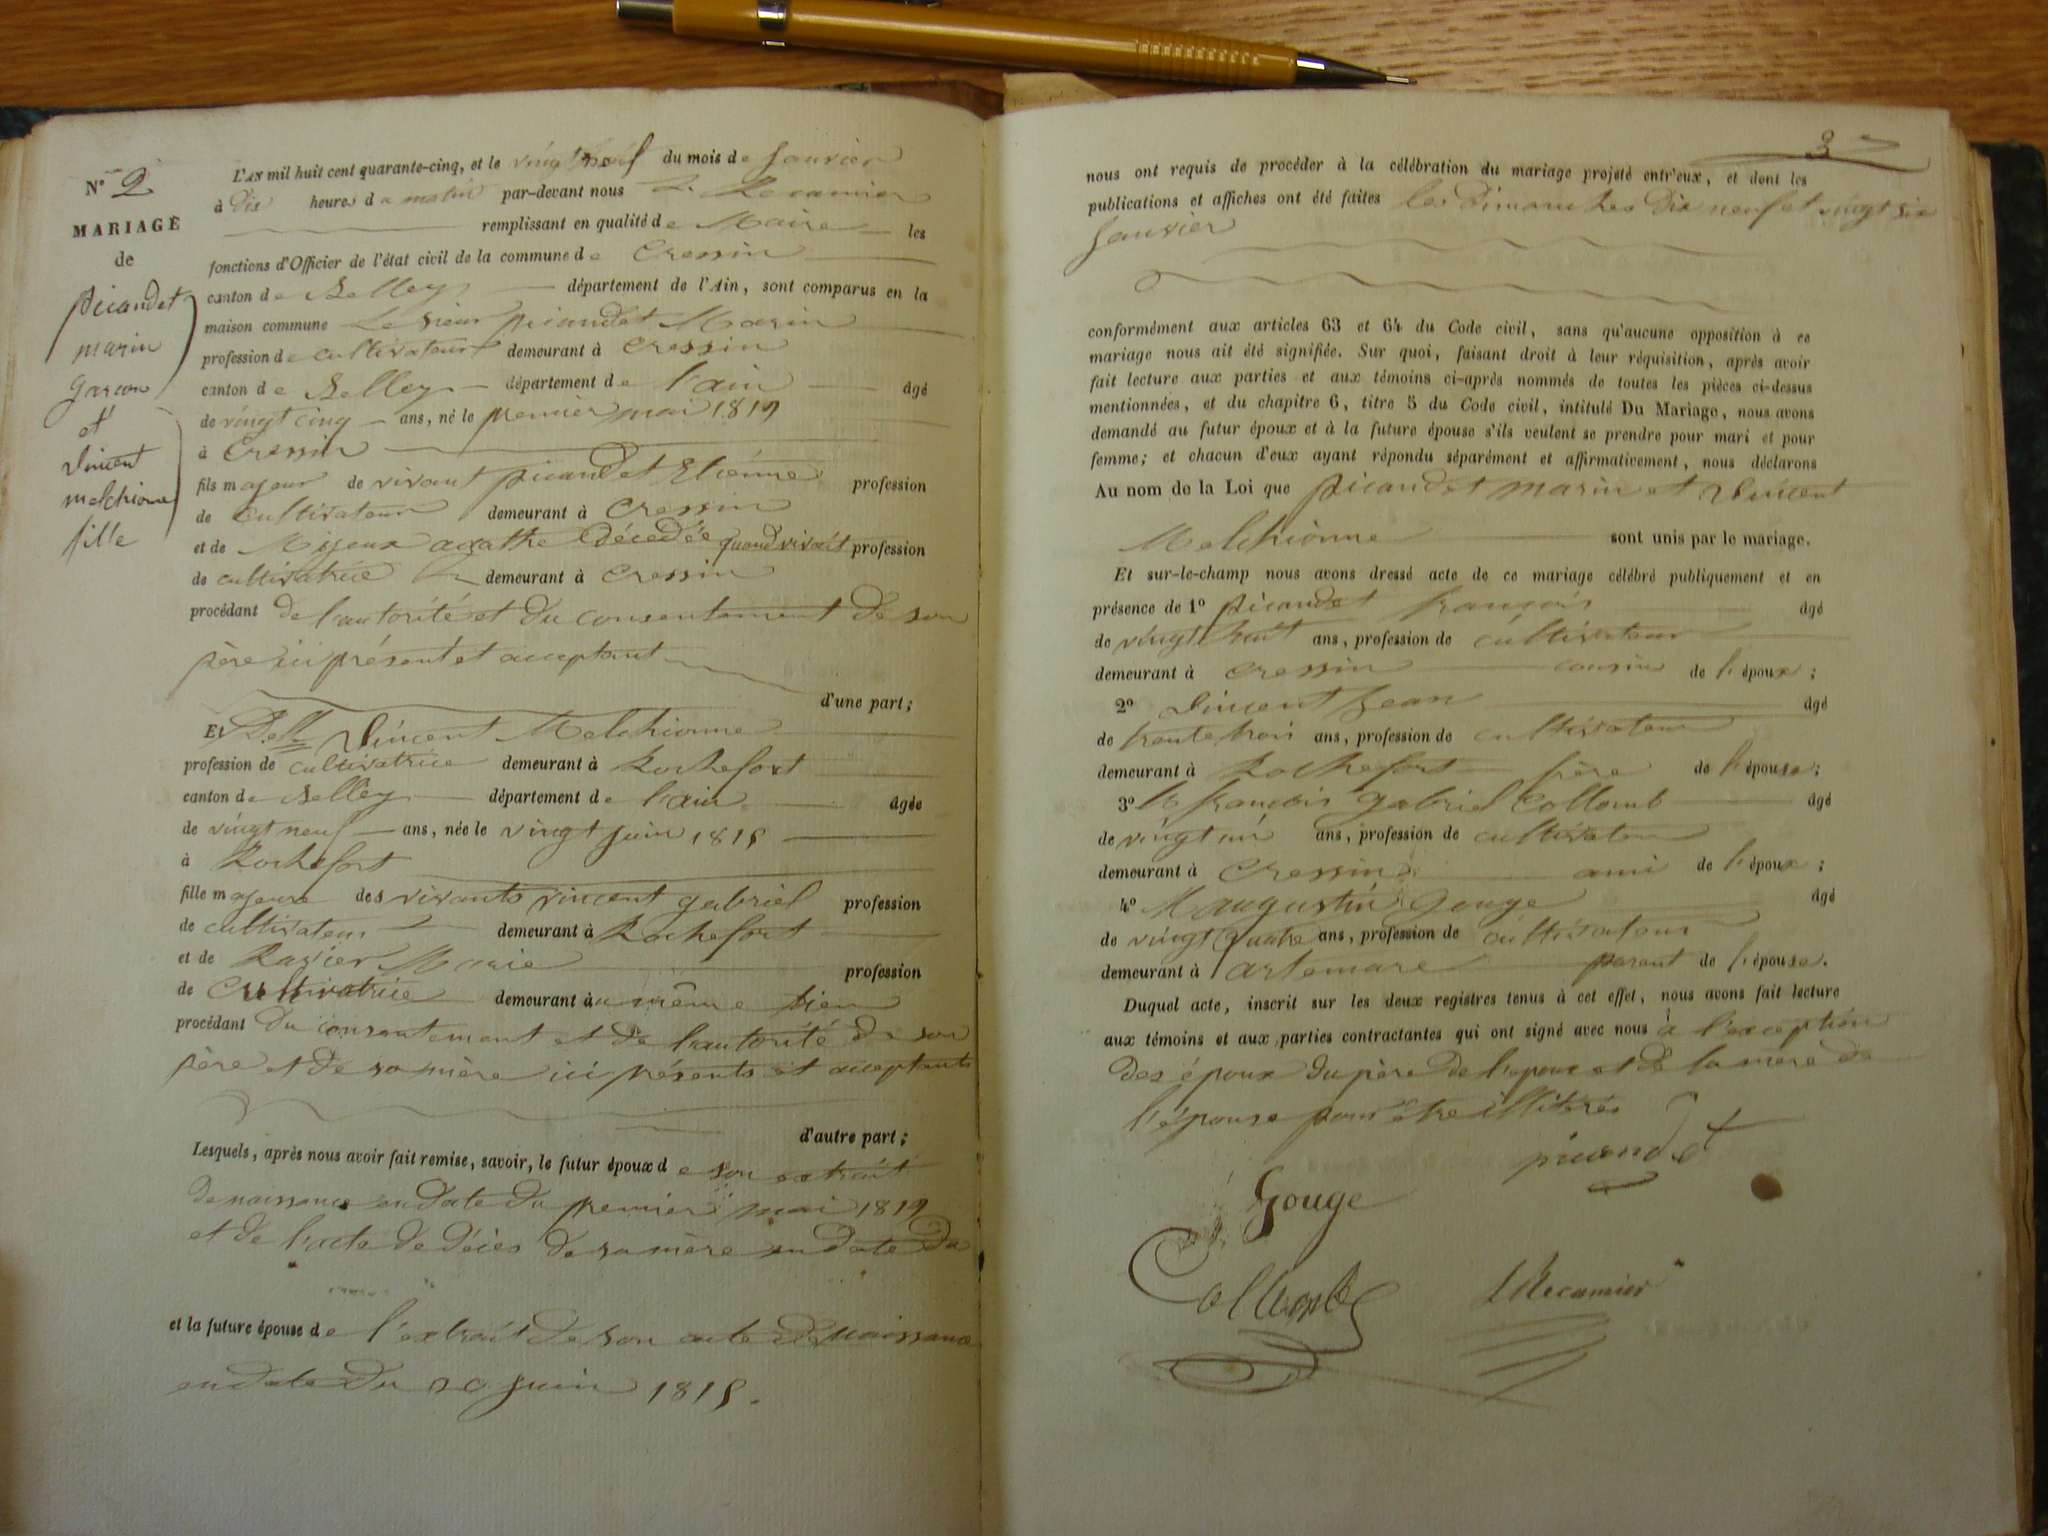 N° 2
MARIAGE
de
picandet
marin
garcon
et
vincent
melchionne
fille
L'AN mil huit cent quarante-cinq, et le vingt neuf du mois de janvier
à dix heures du matin par-devant nous L. Recamier
remplissant en qualité de Maire les
fonctions d'Officier de l'état civil de la commune de Cressin
canton de Belley département de l'Ain, sont comparus en la
maison commune Le sieur picandet Marin
profession de cultivateur demeurant à Cressin
canton de Belley département de l'ain âgé
de vingt cinq ans, né le premier mai 1819
à Cressin
fils majeur de vivant picandet Etienne profession
de cultivateur demeurant à Cressin
et de agathe décédée quand vivait profession
de cultivatrice demeurant à Cressin
procédant de l'autorité et du consentement de son
père ici présent et acceptant
d'une part;
Et Delle Vincent Melchionne
profession de cultivatrice demeurant à Rochefort
canton de Belley département de l'ain âgée
de vingt neuf ans, née le vingt juin 1815
à Rochefort
fille majeure des vivants vincent gabriel profession
de cultivateur demeurant à Rochefort
et de Ravier Marie profession
de cultivatrice demeurant au même lieu
procédant du consentement et de l'autorité de son
père et de sa mère ici présents et acceptants
d'autre part;
Lesquels, après nous avoir fait remise, savoir, le futur époux de son extrait
de naissance en date du premier mai 1819
et de l'acte de décès de sa mère en date du
et la future épouse de l'extrait de son acte de naissance
en date du 20 juin 1815.
3
nous ont requis de procéder à la célébration du mariage projeté entr'eux, et dont les
publications et affiches ont été faites les dimanches dix neuf et vingt six
janvier
conformément aux articles 63 et 64 du Code civil, sans qu'aucune opposition à ce
mariage nous ait été signifiée. Sur quoi, faisant droit à leur réquisition, après avoir
fait lecture aux parties et aux témoins ci-après nommés de toutes les pièces ci-dessus
mentionnées, et du chapitre 6, titre 5 du Code civil, intitulé Du Mariage, nous avons
demandé au futur époux et à la future épouse s'ils veulent se prendre pour mari et pour
femme; et chacun d'eux ayant répondu séparément et affirmativement, nous déclarons
Au nom de la Loi que picandet marin et Vincent
Melchionne sont unis par le mariage.
Et sur-le-champ nous avons dressé acte de ce mariage célébré publiquement et en
présence de 1° picandet françois âgé
de vingt huit ans, profession de cultivateur
demeurant à Cressin cousin de l'époux;
2° Vincent jean âgé
de trente trois ans, profession de cultivateur
demeurant à Rochefort frère de l'épouse;
3° françois gabriel Collomb âgé
de vingt un ans, profession de cultivateur
demeurant à Cressin ami de l'époux;
4° augustin Gouge âgé
de vingt quatre ans, profession de cultivateur
demeurant à artemare parent de l'épouse.
Duquel acte, inscrit sur les deux registres tenus à cet effet, nous avons fait lecture
aux témoins et aux parties contractantes qui ont signé avec nous à l'exception
des époux du père de l'epoux et de la mère de
l'épouse pour être illiterés
picandet
Gouge
Collomb
L Recamier